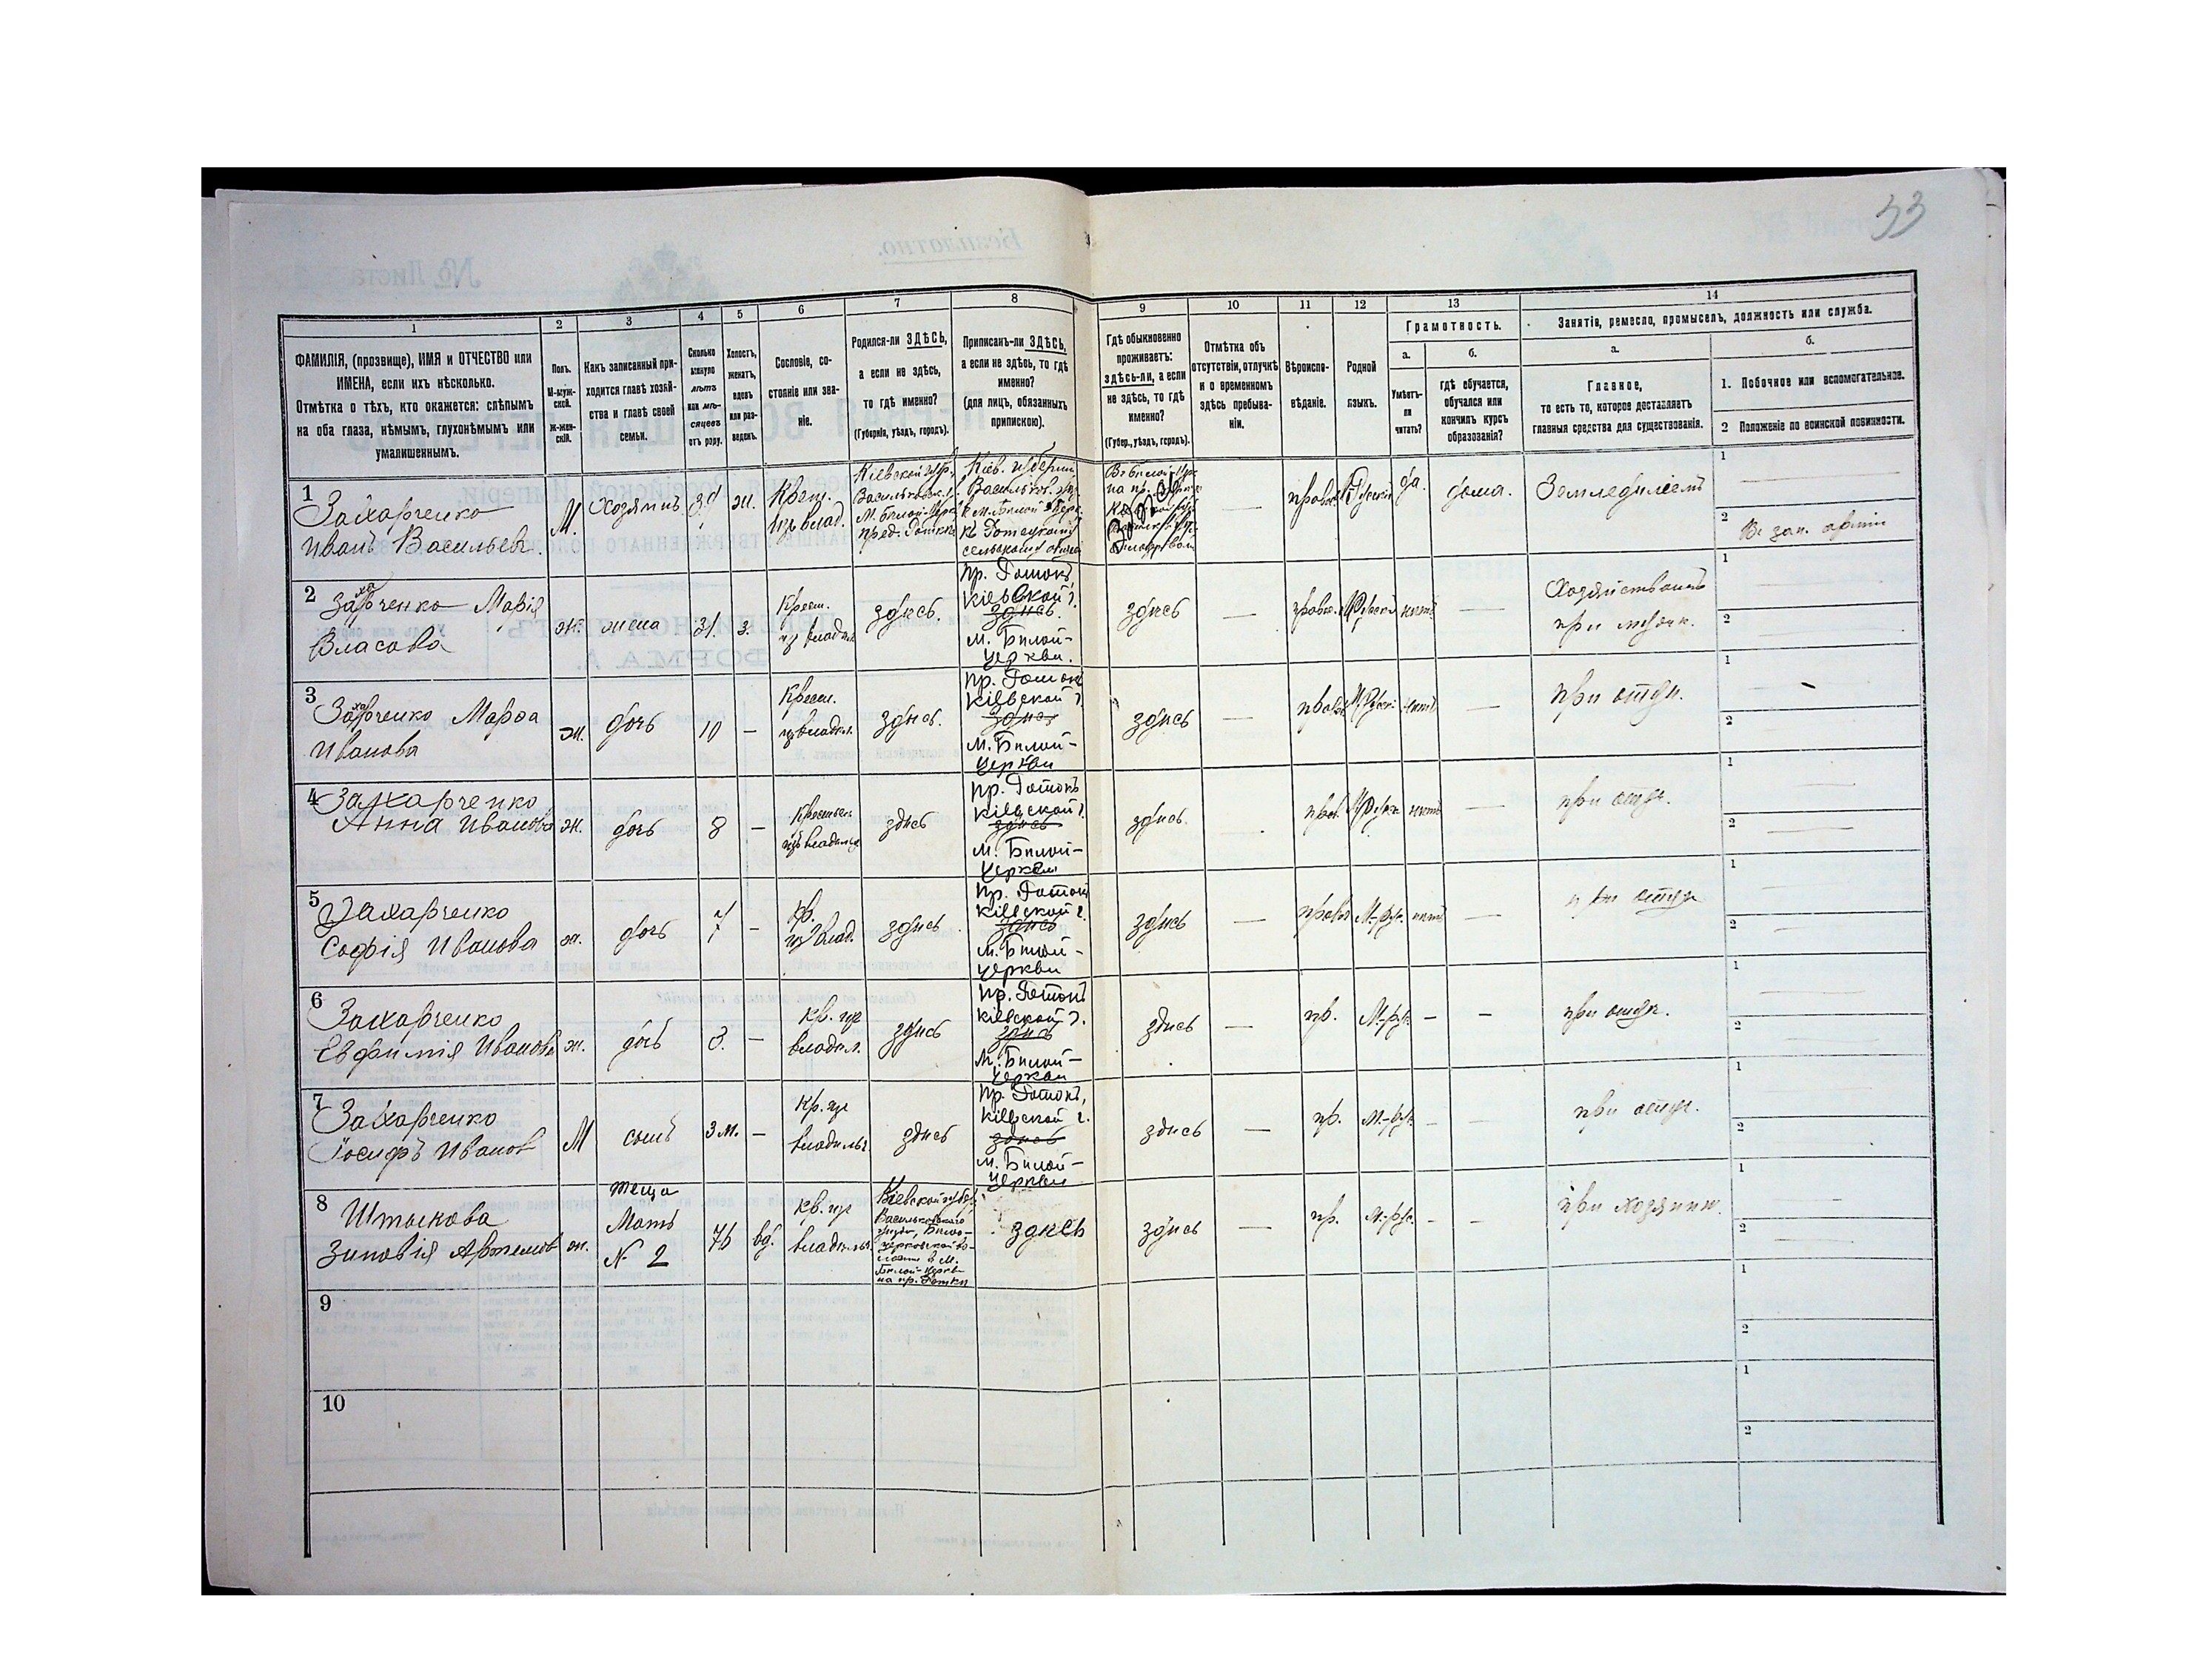 33
1
ФАМИЛІЯ, (прозвище), ИМЯ и ОТЧЕСТВО или
ИМЕНА, если ихъ нѣсколько.
Отмѣтка о тѣхъ, кто окажется: слѣпымъ
на оба глаза, нѣмымъ, глухонѣмымъ или
умалишеннымъ.
2
Полъ.
М-муж-
ской.
Ж-жен-
скій.
3
Какъ записанный при-
ходится главѣ хозяй-
ства и главѣ своей
семьи.
4
Сколько
минуло
лѣтъ
или мѣ-
сяцевъ
отъ роду.
5
Холостъ,
женатъ,
вдовъ
или раз-
веденъ.
6
Сословіе, со-
стояніе или зва-
ніе.
7
Родился-ли ЗДѢСЬ,
а если не здѣсь,
то гдѣ именно?
(Губернія, уѣздъ, городъ).
8
Приписанъ-ли ЗДѢСЬ,
а если не здѣсь, то гдѣ
именно?
(для лицъ, обязанныхъ
припискою).
9
Гдѣ обыкновенно
проживаетъ:
здѣсь-ли, а если
не здѣсь, то гдѣ
именно?
(Губер., уѣздъ, городъ).
10
Отмѣтка объ
отсутствіи, отлучкѣ
и о временномъ
здѣсь пребыва-
ніи.
11
Вѣроиспо-
вѣданіе.
12
Родной
языкъ.
13
Грамотность.
а.
Умѣетъ-
ли
читать?
б.
гдѣ обучается,
обучался или
кончилъ курсъ
образованія?
14
Занятія, ремесло, промыселъ, должность или служба.
а.
Главное,
то есть то, которое доставляетъ
главныя средства для существованія.
б.
1. Побочное или вспомогательное.
2 Положеніе по воинской повинности.
1
Захарченко
Иванъ Васильев.
М.
Хозяинъ
ж.
Крест.
изъ влад.
Кіевской губ.
Васильковск. у.
М. Бѣлой-Церк.
пред. Ротки
Кіев. губерніи
Васильков. у.
к м. Бѣлой Церк.
къ Ротоцкому
сельскому
здѣсь
—
да.
дома.
Земледѣліемъ
1
2
Въ зап. арміи
2
Захарченко Марія
Власова
ж.
жена
31.
з.
Крест.
из владѣл.
здѣсь.
пр. Ротокъ,
Кіевской г.
здѣсь.
м. Бѣлой-
Церкви.
здѣсь
—
нѣтъ
—
Хозяйством
при мужѣ.
1
2
3
Захарченко Марѳа
Иванова
ж.
дочь
10
—
Крест.
из владѣл.
здѣсь.
пр. Ротокъ
Кіевской г.
здѣсь
м. Бѣлой-
Церкви
здѣсь
—
нѣтъ
—
при отцѣ.
1
2
4
Захарченко
Анна Иванова
ж.
дочь
8
—
Крестьян.
изъ владѣл.
здѣсь
пр. Ротокъ
Кіевской г.
здѣсь
м. Бѣлой-
Церкви
здѣсь.
прав.
нѣтъ
—
при отцѣ.
1
2
5
Захарченко
Софія Иванова
ж.
дочь
7
—
Кр.
из влад.
здѣсь
пр. Ротокъ
Кіевской г.
здѣсь
м. Бѣлой-
Церкви
здѣсь
—
правос.
М.-рус.
нѣтъ
—
при отцѣ
1
2
6
Захарченко
Евфимія Иванова
ж.
дочь
3.
—
кр. из
владѣл.
здѣсь
пр. Ротокъ
Кіевской г.
здѣсь
м. Бѣлой-
Церкви
здѣсь
—
пр.
М.-рус.
—
—
при отцѣ.
1
2
7
Захарченко
Іосифъ Иванов
М
сынъ
3 м.
—
Кр. из
владѣльч.
здѣсь
пр. Ротокъ,
Кіевской г.
здѣсь
м. Бѣлой-
Церкви
здѣсь
—
пр.
М.-рус.
—
—
при отцѣ.
1
2
8
Штыкова
Зиновія Артемов
ж.
теща
Мать
№ 2
76
вд.
кр. из
владѣльч.
Кіевской губер.,
Васильковскаго
уѣзда, Бѣло-
церковской во-
лости в М.
Бѣлой-Церкви
на пр. Ротки
здѣсь
здѣсь
—
пр.
М.-рус.
—
—
при хозяинѣ.
1
2
9
1
2
10
1
2